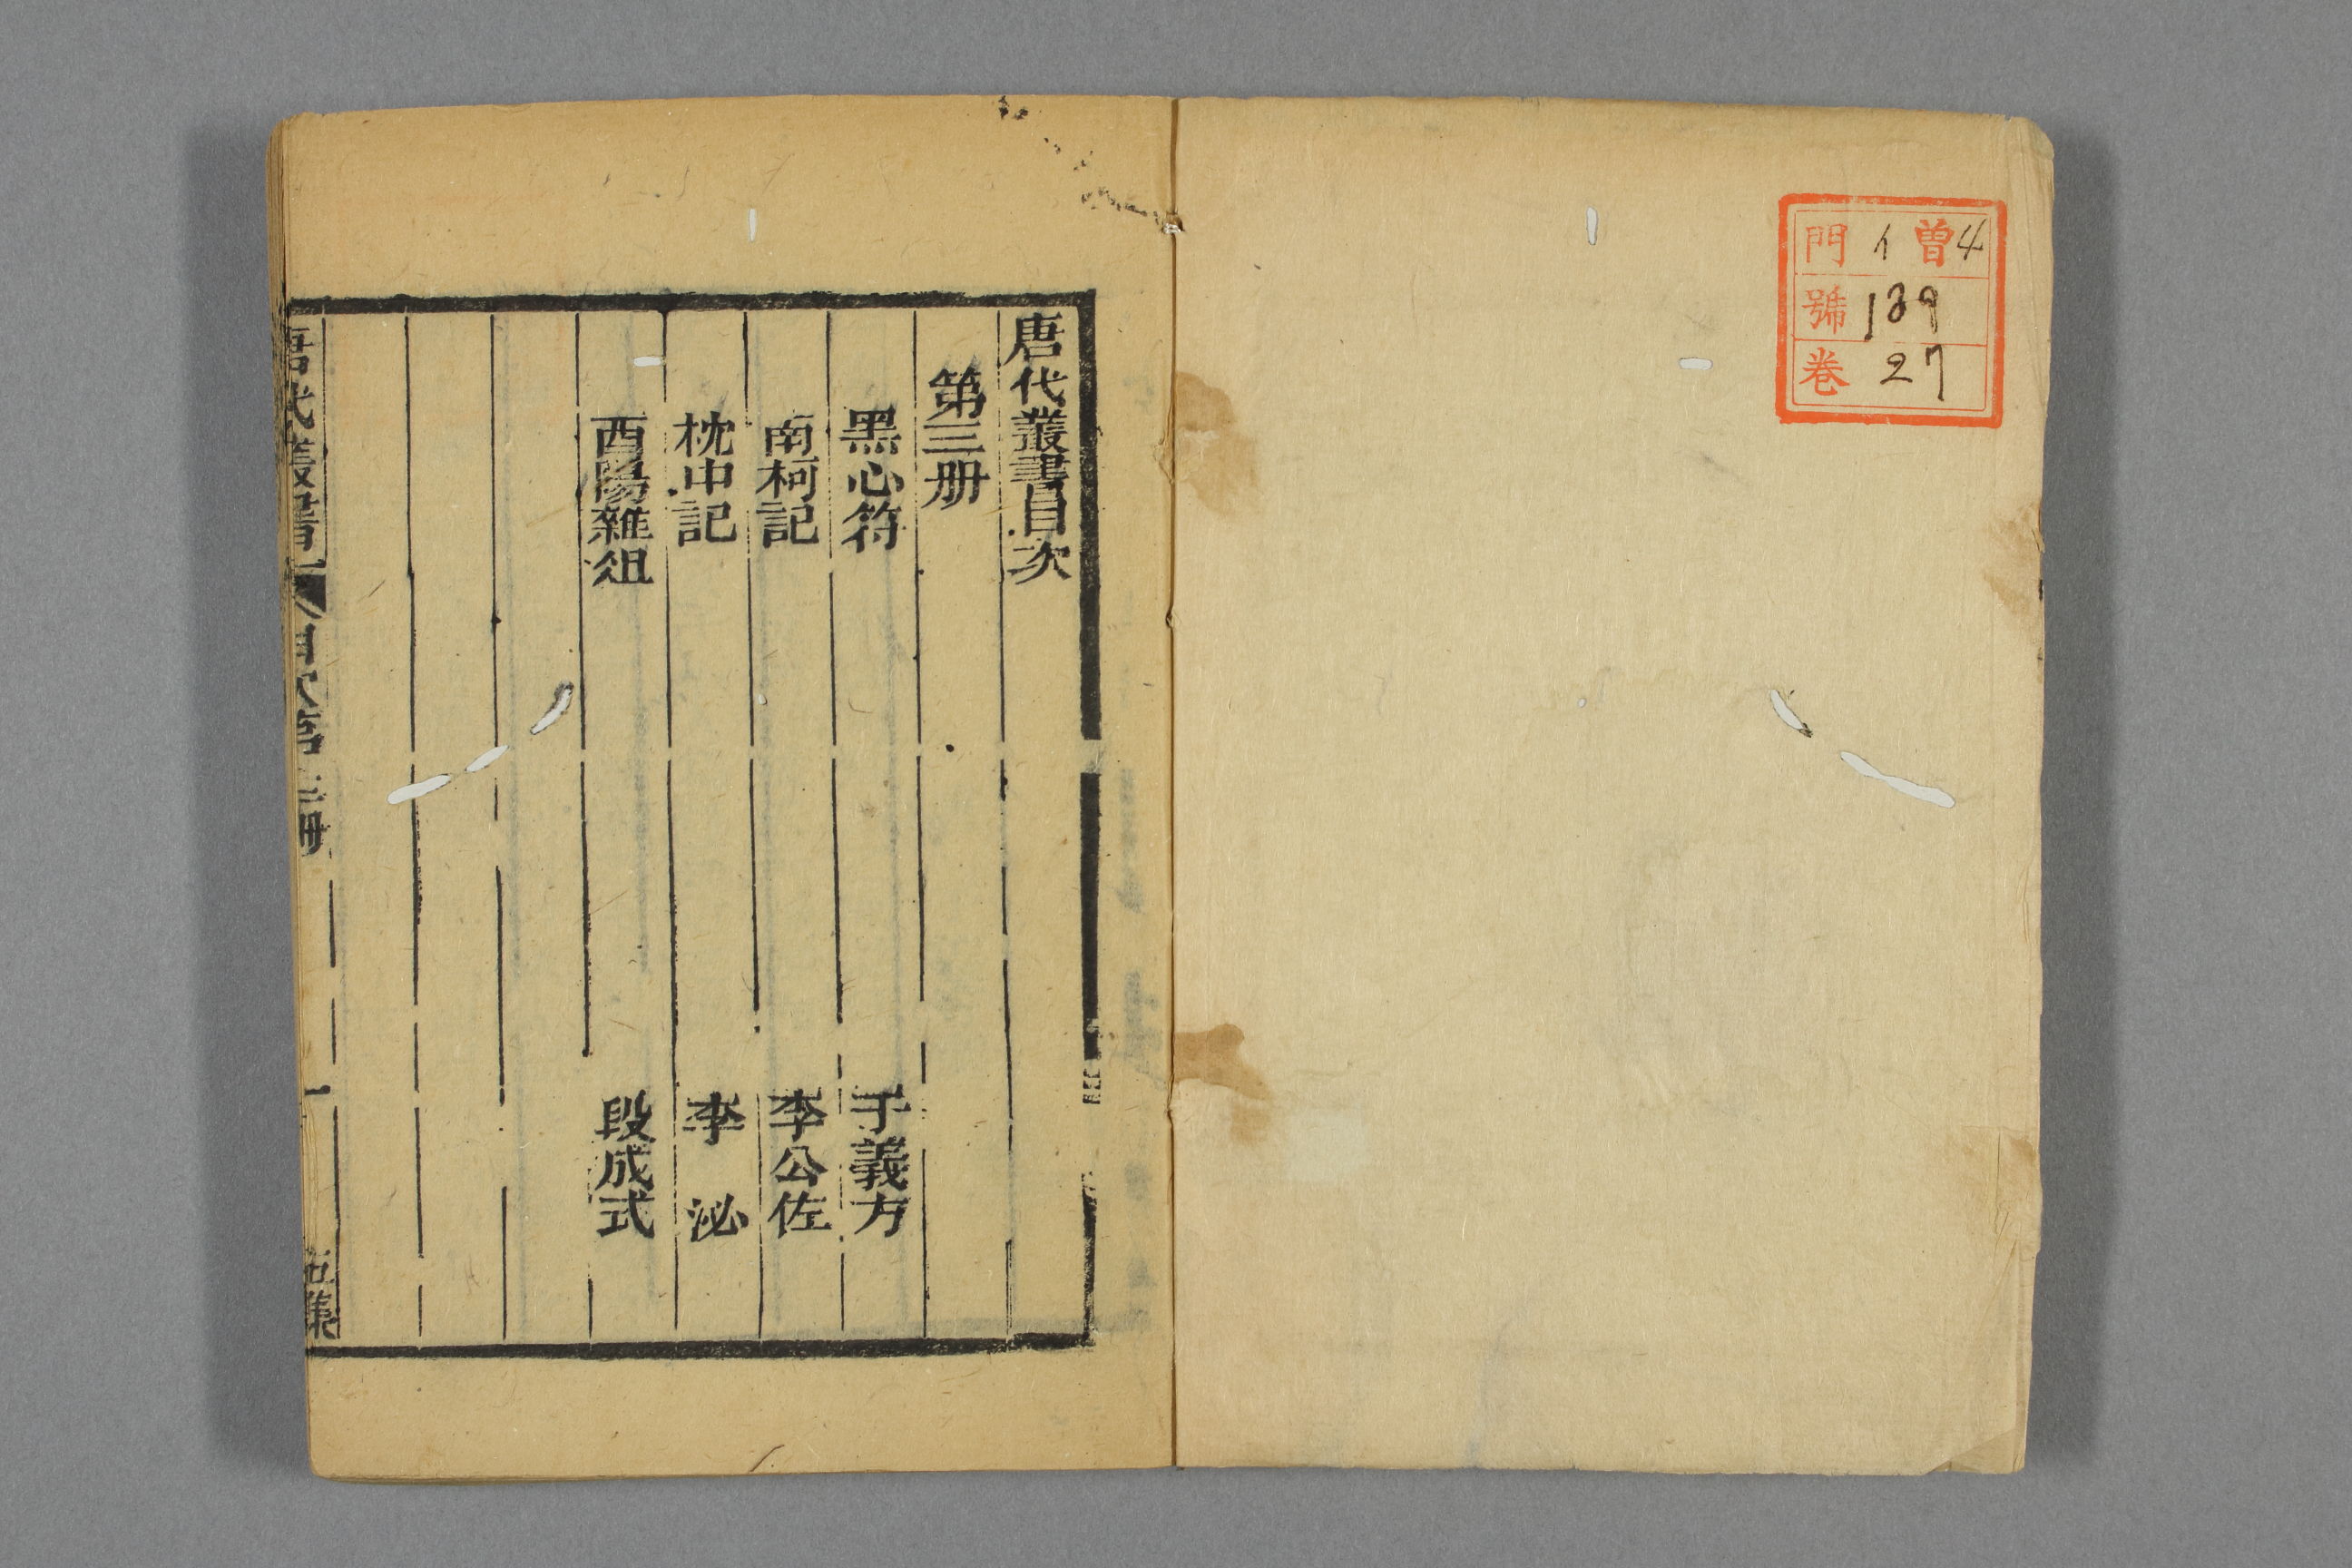 門 イ 曽4
號 139
卷 27
唐代叢書目次
第三册
黑心符 于義方
南柯記 李公佐
枕中記 李 泌
酉陽雜俎 段成式
唐代叢書 目次第三册 一 五集